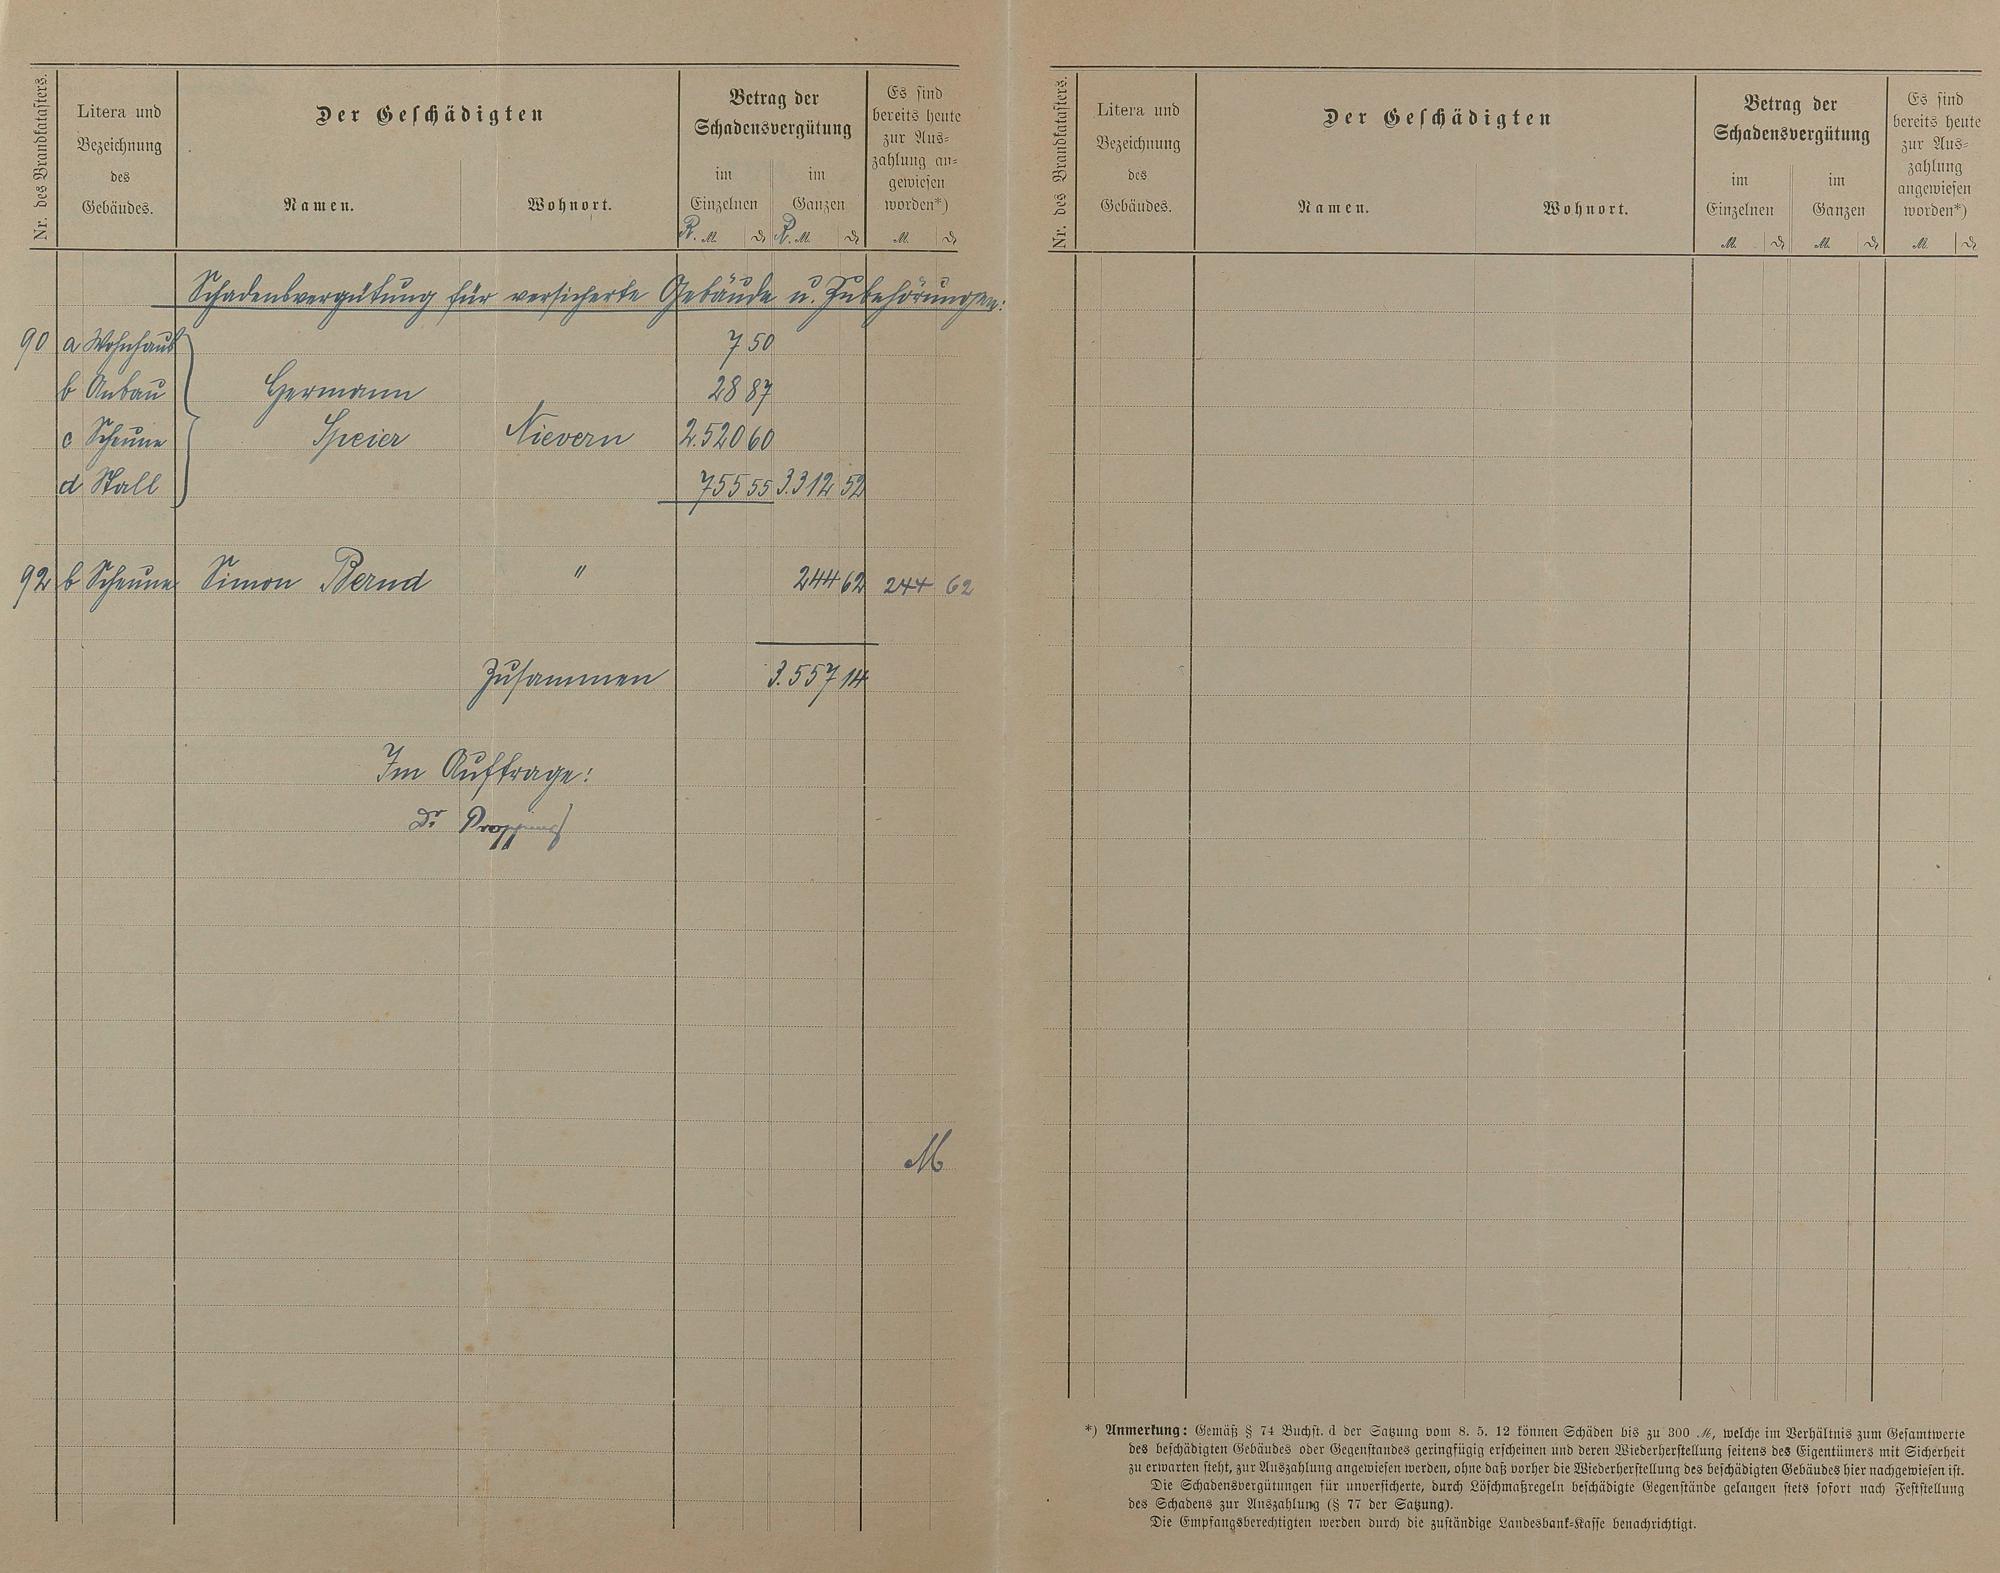 Nr. des Brandkatasters.
Litera und
Bezeichnung
des
Gebäudes.
Der Geschädigten
Namen.
Wohnort.
Betrag der
Schadensvergütung
im
Einzelnen
im
Ganzen
R. M. ₰ R. M. ₰
Es sind
bereits heute
zur Aus-
zahlung an-
gewiesen
worden*)
M. ₰
Schadensvergütung für versicherte Gebäude u. Zubehörungen:
90 a Wohnhaus 7 50
b Anbau Hermann 28 87
c Scheune Speier Nievern 2.520 60
d Stall 755 55 3.312 52
92 b Scheune Simon Bernd " 244 62 244 62
Zusammen 3.557 14
Im Auftrage:
Dr
M
Nr. des Brandkatasters.
Litera und
Bezeichnung
des
Gebäudes.
Der Geschädigten
Namen.
Wohnort.
Betrag der
Schadensvergütung
im
Einzelnen
im
Ganzen
M. ₰ M. ₰
Es sind
bereits heute
zur Aus-
zahlung
angewiesen
worden*)
M. ₰
*) Anmerkung: Gemäß § 74 Buchst. d der Satzung vom 8. 5. 12 können Schäden bis zu 300 M, welche im Verhältnis zum Gesamtwerte
des beschädigten Gebäudes oder Gegenstandes geringfügig erscheinen und deren Wiederherstellung seitens des Eigentümers mit Sicherheit
zu erwarten steht, zur Auszahlung angewiesen werden, ohne daß vorher die Wiederherstellung des beschädigten Gebäudes hier nachgewiesen ist.
Die Schadensvergütungen für unversicherte, durch Löschmaßregeln beschädigte Gegenstände gelangen stets sofort nach Feststellung
des Schadens zur Auszahlung (§ 77 der Satzung).
Die Empfangsberechtigten werden durch die zuständige Landesbank-Kasse benachrichtigt.